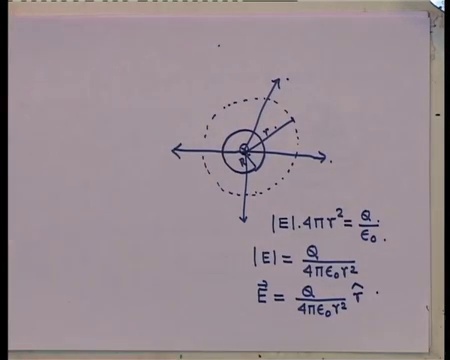 r
Q
R
|E|.4πr² = Q/ε₀.
|E| = Q/4πε₀r²
E⃗ = Q/4πε₀r² r̂.